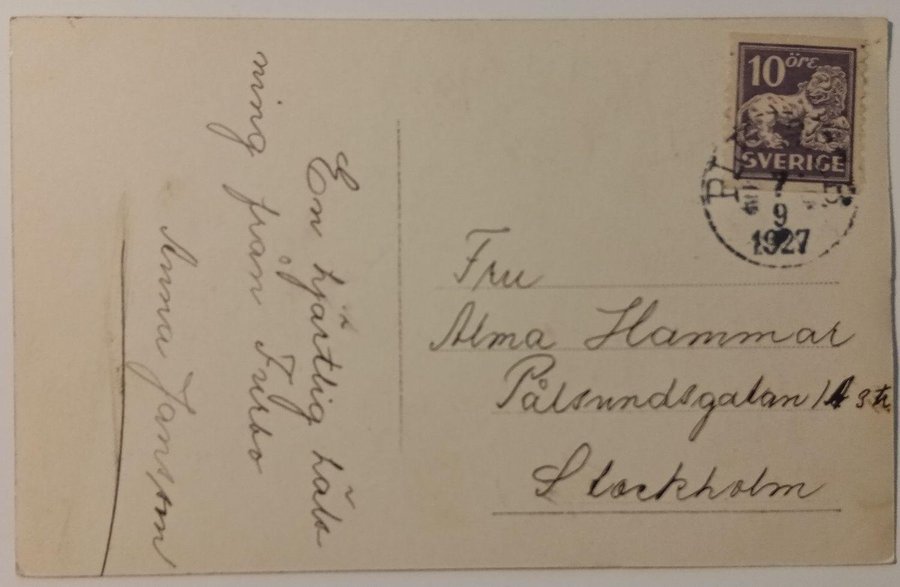 En hjärtlig häls
ning från Furbo
Anna Jansson
10 öre
SVERIGE
7
9
1927
Fru
Alma Hammar
Pålsundsgatan 3 tr.
Stockholm